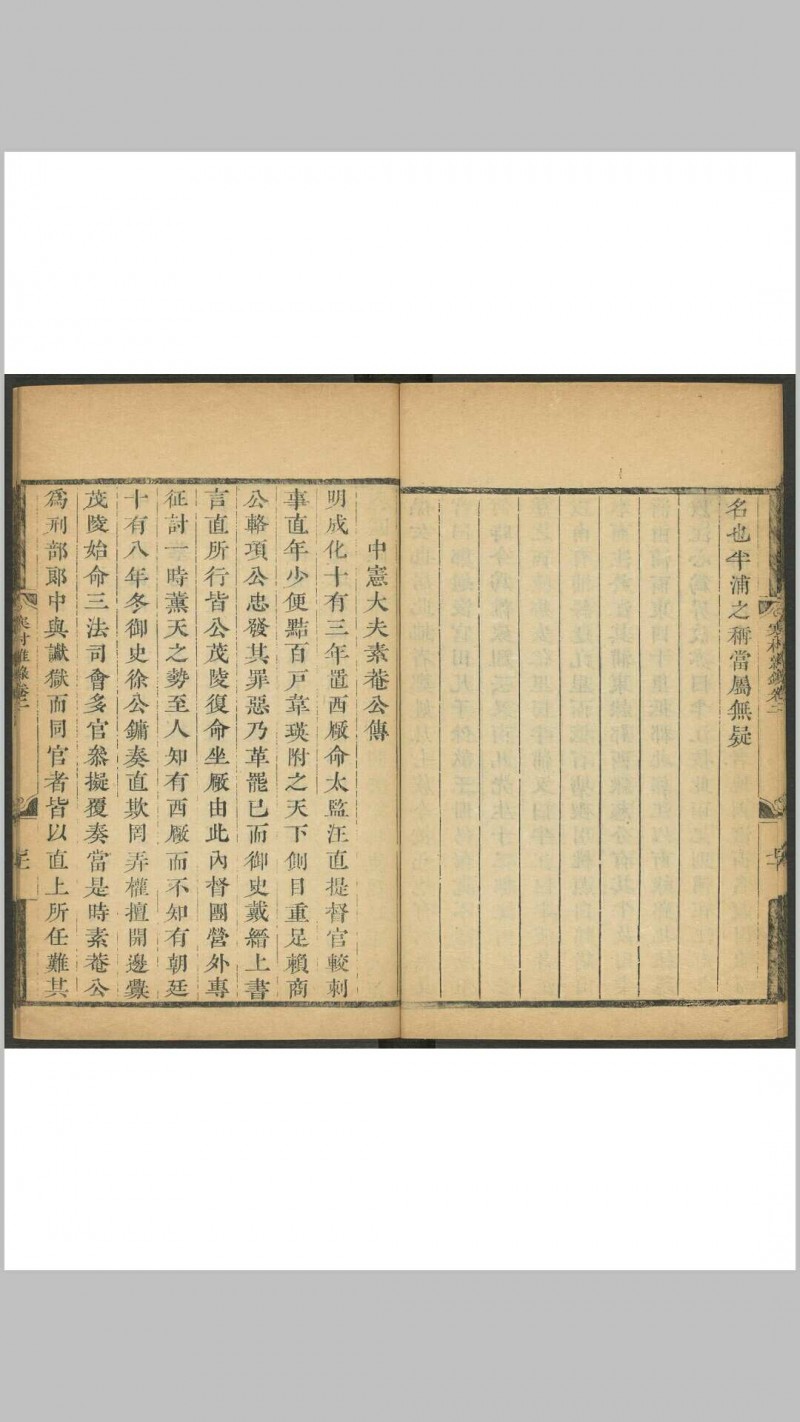 名也半浦之稱當屬無疑
中憲大夫素菴公傳
明成化十有三年置西厰命太監汪直提督官較刺
事直年少便黠百戸韋瑛附之天下側目重足賴商
公輅項公忠發其罪惡乃革罷已而御史戴縉上書
言直所行皆公茂陵復命坐厰由此內督團營外專
征討一時薰天之勢至人知有西厰而不知有朝廷
十有八年冬御史徐公鏞奏直欺罔弄權擅開邊釁
茂陵始命三法司會多官叅擬覆奏當是時素菴公
爲刑部郎中與讞獄而同官者皆以直上所任難其